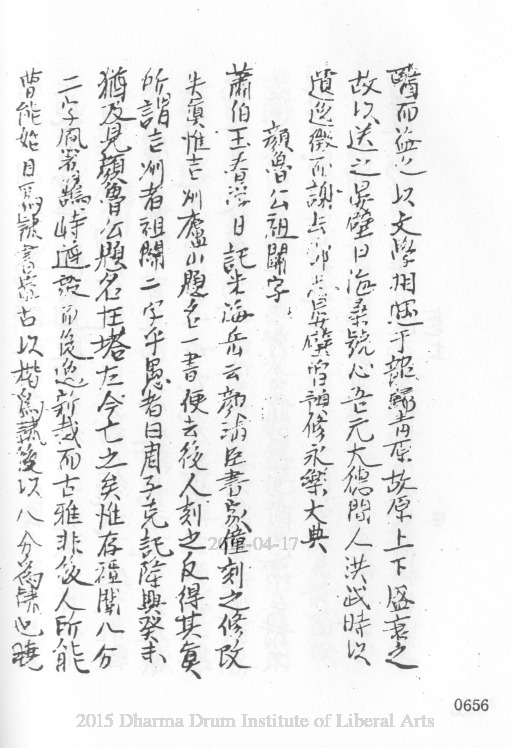 醫而海之以文學相遇于龍鬚青原故原上下盛衰之
故以送之吳壁曰海桑號心吾元大德間人洪武時以
遺逸徵而謝去郎吳壁曾詔修永樂大典
顏魯公祖關字
蕭伯玉春浮日記米海岳云顏清臣書家僮刻之修改
失真惟吉州廬山題名一書便去後人刻之反得其真
所謂吉州者祖關二字乎愚者曰周子充記隆興癸未
猶及見顏魯公題名在塔左今亡之矣惟存祖關八分
二字風署鶴峙遒逸新裁而古雅非後人所能
曹能始曰為隸書蓋古以楷為隸後以八分為隸也曉
2015-04-17
0656
2015 Dharma Drum Institute of Liberal Arts